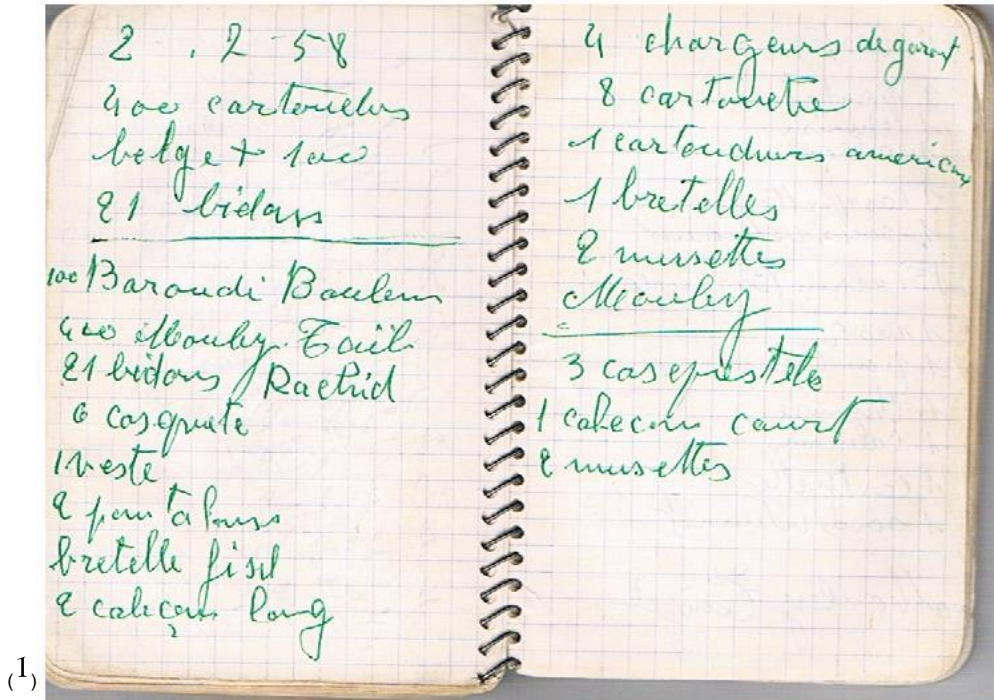 2 . 2 - 58
400 cartouches
belge + 100
21 bidons
100 Baroudi Boulem
400 Mouley Taïb
21 bidons Rachid
6 casquate
1 veste
2 pantalons
bretelle fisil
2 caleçons long
4 chargeurs de garant
8 cartouche
1 cartouchurs americain
1 bretelles
2 musettes
Mouley
3 casquettete
1 calecon court
2 musettes
(1)